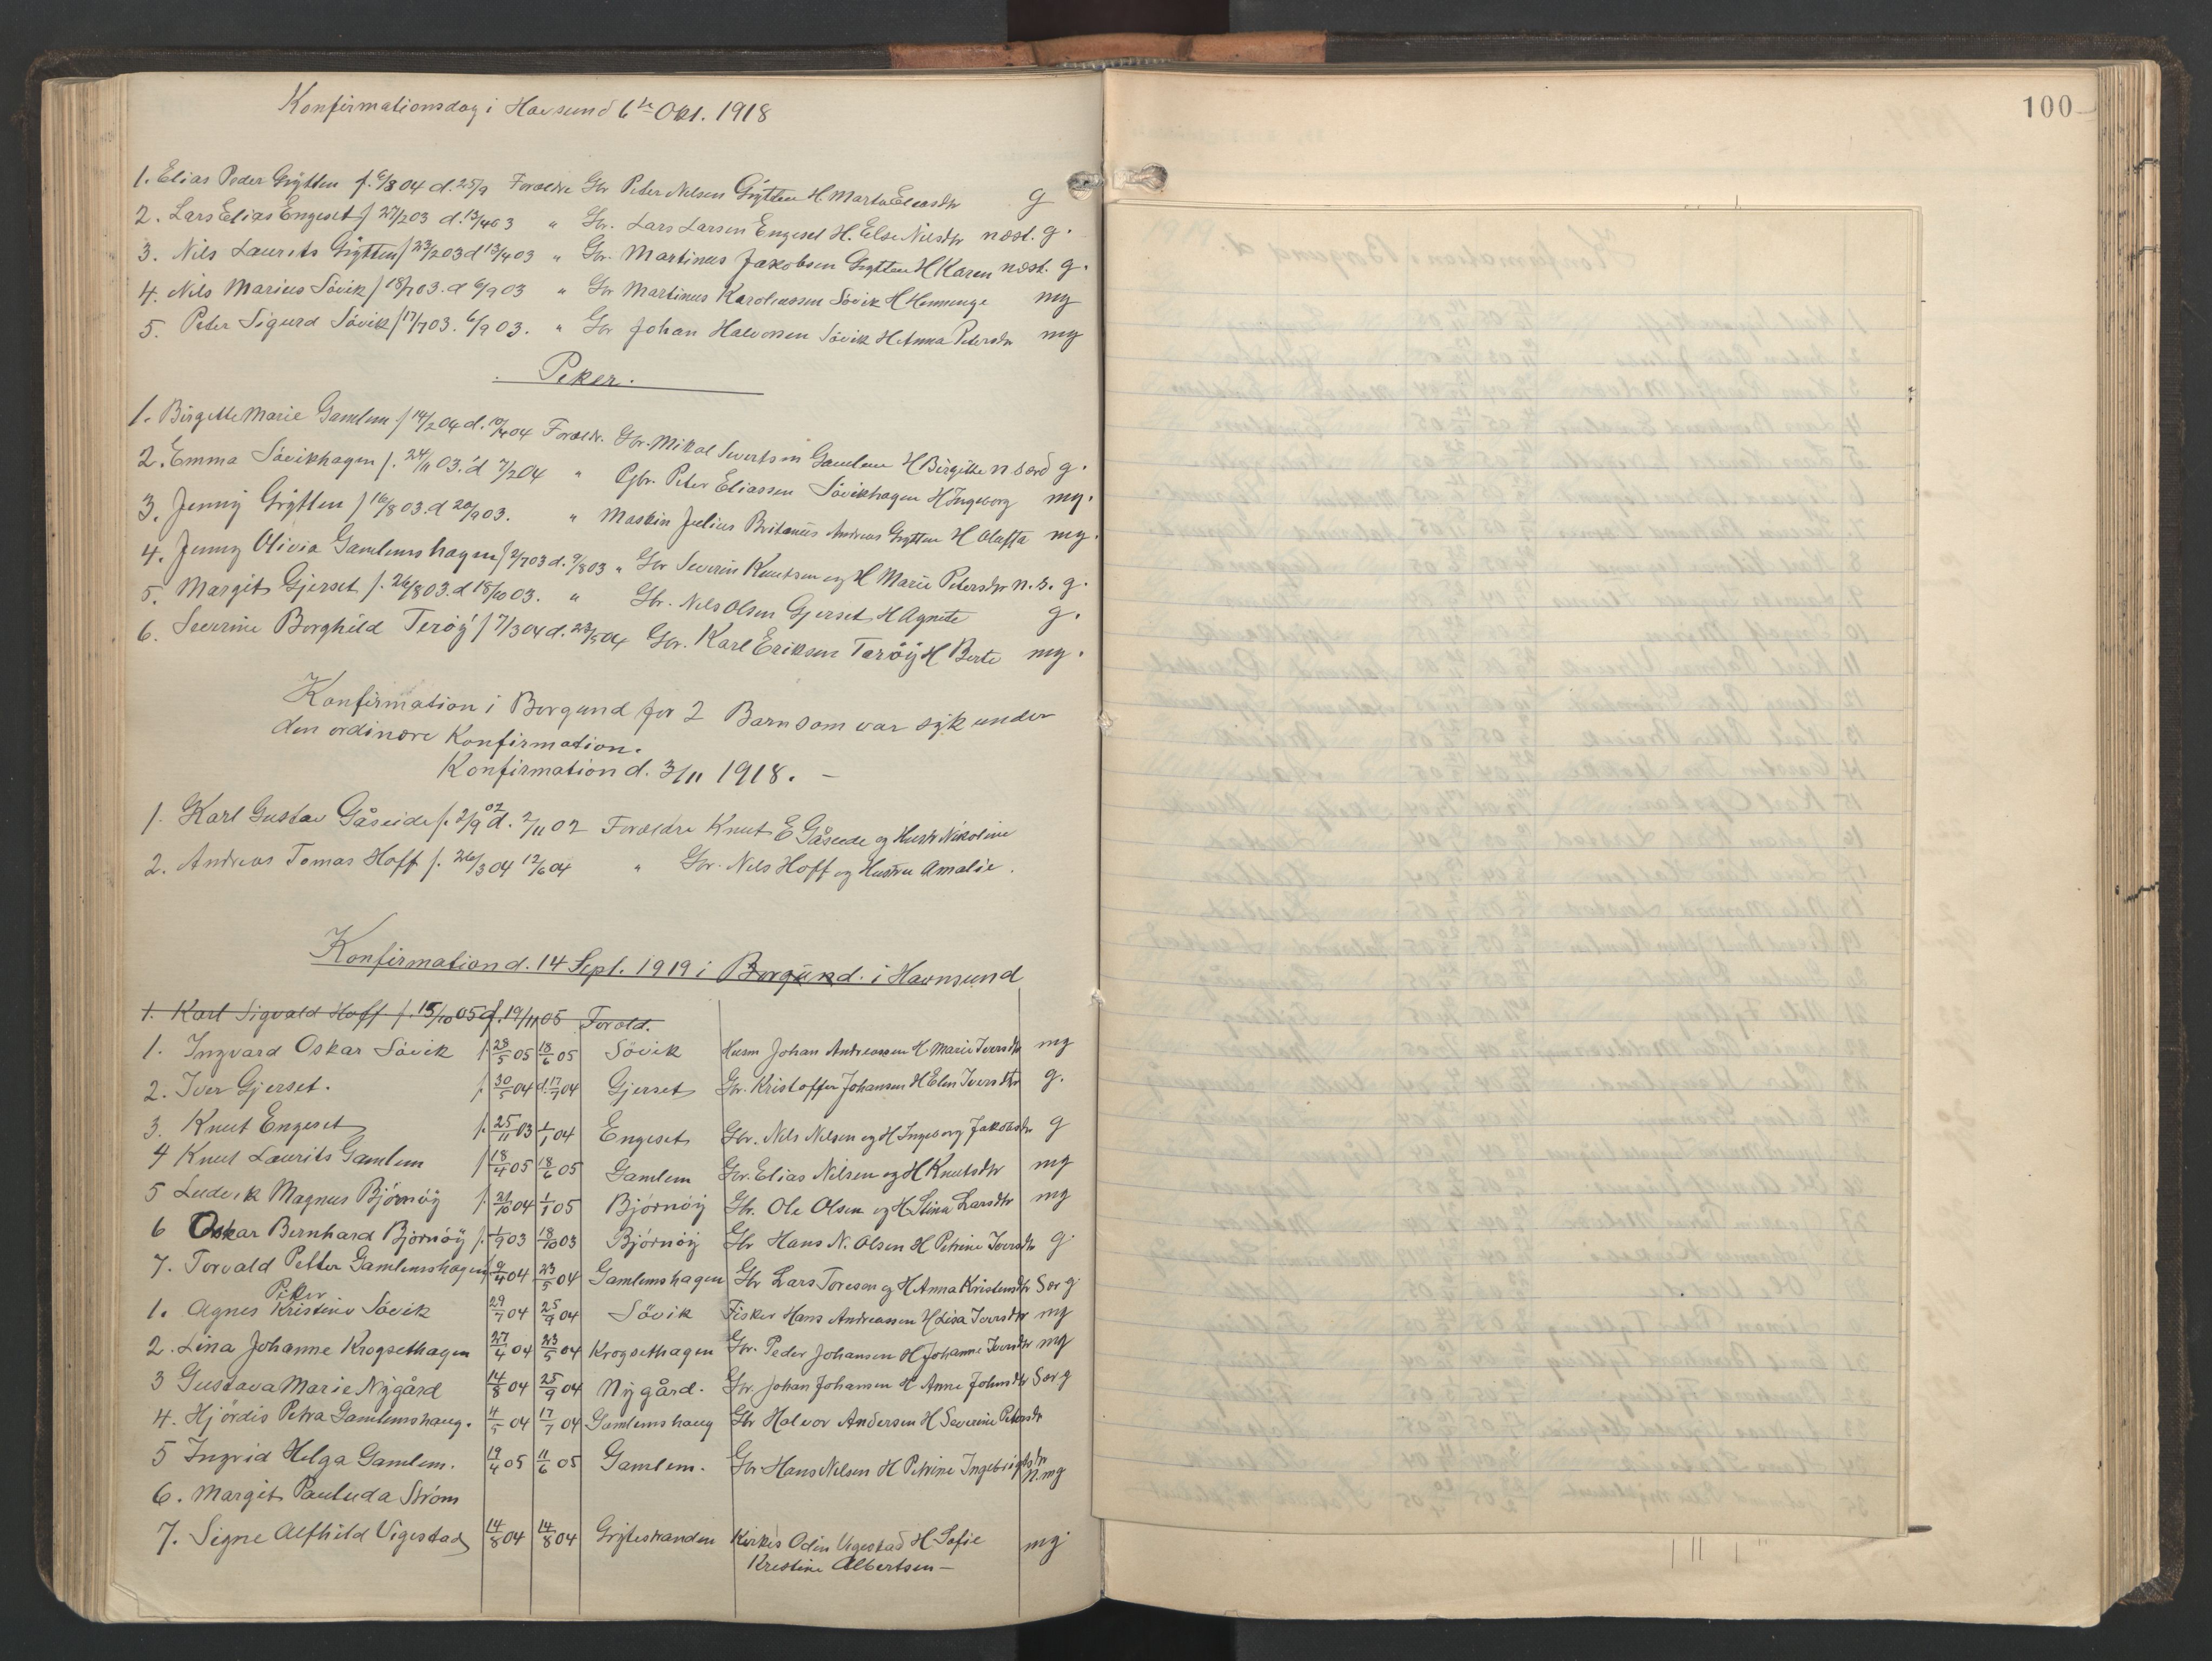 Konfirmationsdag i Havsund 6te Okt. 1918
1. Elias Peder Grytten f. 6/8 04 d. 25/9 Forældre Gbr Peter Nilsen Grytten H. Marta Eliasdtr g
2. Lars Elias Engeset f 27/2 03 d. 13/4 03 " Gbr. Lars Larsen Engeset H. Else Nilsdtr næst. g.
3. Nils Laurits Grytten f 23/2 03 d 13/4 03 " Gbr. Martinus Jakobsen Grytten H Karen næst. g.
4. Nils Marius Søvik f 18/7 03. d 6/9 03 " Gbr Martinus Karoliussen Søvik H Hemminge mg
5. Peter Sigurd Søvik f 17/7 03. 6/9 03. " Gbr Johan Halvorsen Søvik H Anna Petersdtr mg
Piker.
1. Birgitte Marie Gamlem f 14/2 04 d. 10/4 04 Foræld. Gbr. Mikal Sivertsen Gamlem H Birgitte n særd g.
2. Emma Søvikhagen f. 24/11 03. d 7/2 04 " Gbr. Peter Eliassen Søvikhagen H Ingeborg mg.
3. Jenny Grytten f 16/8 03. d 20/9 03. " Maskin Julius Britanus Andreas Grytten H Oluffa mg.
4. Jenny Olivia Gamlemshagen f 2/7 03 d. 9/8 03 " Gbr Severin Knutsen og H Marie Petersdtr n. s. g.
5. Margit Gjerset f. 26/8 03. d 18/10 03. " Gbr. Nils Olsen Gjerset H Agnete g.
6. Severine Borghild Terøy f 7/3 04 d. 23/5 04 Gbr. Karl Eriksen Tarøy H Berte mg.
Konfirmation i Borgund for 2 Barn som var syk under
den ordinære Konfirmation.
Konfirmation d. 3/11 1918. –
1. Karl Gustav Gåseide f. 2/9 02 d. 2/11 02 Forældre Knut E Gåseide og Hustr Nikoline
2. Andreas Tomas Hoff f. 26/3 04 12/6 04 " Gbr. Nils Hoff og Hustru Amalie.
Konfirmation d. 14 Sept. 1919 i Borgund. i Havnsund
1. Karl Sigvald Hoff f. 15/10 05 d. 19/11 05 Foræld.
1. Ingvard Oskar Søvik f. 28/5 05 18/6 05 Søvik Husm Johan Andreassen H. Marie Iversdtr mg
2. Iver Gjerset. f. 30/5 04 d. 17/7 04 Gjerset Gbr. Kristoffer Johansen H Elen Iversdtr g.
3. Knut Engeset f. 25/11 03 1/1 04 Engeset Gbr. Nils Nilsen og H Ingeborg Jakobsdtr g
4 Knut Laurits Gamlem f 18/4 05 18/6 05 Gamlem Gbr. Elias Nilsen og H Knutsdtr mg
5 Ludvik Magnus Bjørnøy f. 21/10 04 1/1 05 Bjørnøy Gbr. Ole Olsen og H Stina Larsdtr mg
6 Oskar Bernhard Bjørnøy f. 1/9 03 18/10 03 Bjørnøy Gbr Hans N. Olsen H Petrine Iversdtr g
7. Torvald Petter Gamlemshagen f 9/4 04 23/5 04 Gamlemshagen Gbr Lars Toresen og H Anna Kristensdtr Sær g
Piker
1. Agnes Kristine Søvik 29/7 04 25/9 04 Søvik Fisker Hans Andreassen H Lisa Iversdtr mg
2. Lina Johanne Krogsethagen 27/4 04 23/5 04 Krogsethagen Gbr. Peder Johansen H Johanne Iversdtr mg
3 Gustava Marie Nygård 14/8 04 25/9 04 Nygård. Gbr. Johan Johansen H Anne Johnsdtr Sær g
4. Hjørdis Petra Gamlemshaug. 11/5 04 17/7 04 Gamlemshaug Gbr Halvor Andersen H Severine Petersdtr
5 Ingrid Helga Gamlem. 19/4 05 11/6 05 Gamlem. Gbr Hans Nilsen H Petrine Ingebrigtsdtr n. mg
6. Margit Pauluda Strøm
7. Signe Alfhild Vigestad 14/8 04 14/8 04 Grytestranden Kirkes Odin Vigestad H Sofie mg
Kristine Albertsen –
100